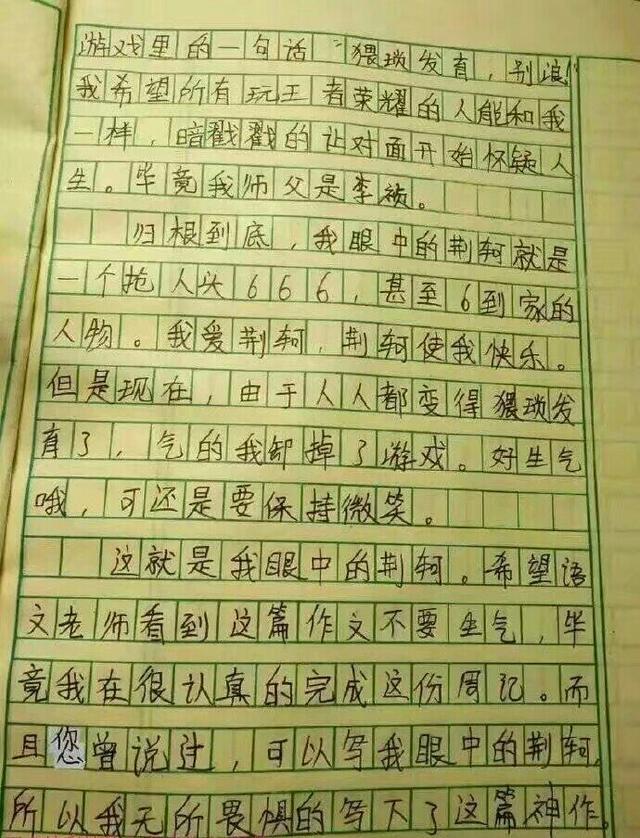 游戏里的一句话："猥琐发育，别浪！"
我希望所有玩王者荣耀的人能和我
一样，暗戳戳的让对面开始怀疑人
生。毕竟我师父是李祯。
归根到底，我眼中的荆轲就是
一个抢人头666，甚至6到家的
人物。我爱荆轲，荆轲使我快乐。
但是现在，由于人人都变得猥琐发
育了，气的我卸掉了游戏。好生气
哦，可还是要保持微笑。
这就是我眼中的荆轲。希望语
文老师看到这篇作文不要生气，毕
竟我在很认真的完成这份周记。而
且您曾说过，可以写我眼中的荆轲，
所以我无所畏惧的写下了这篇神作。